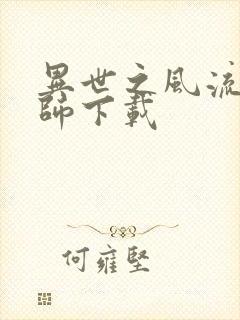 異世之風流
師下載
何雍堅